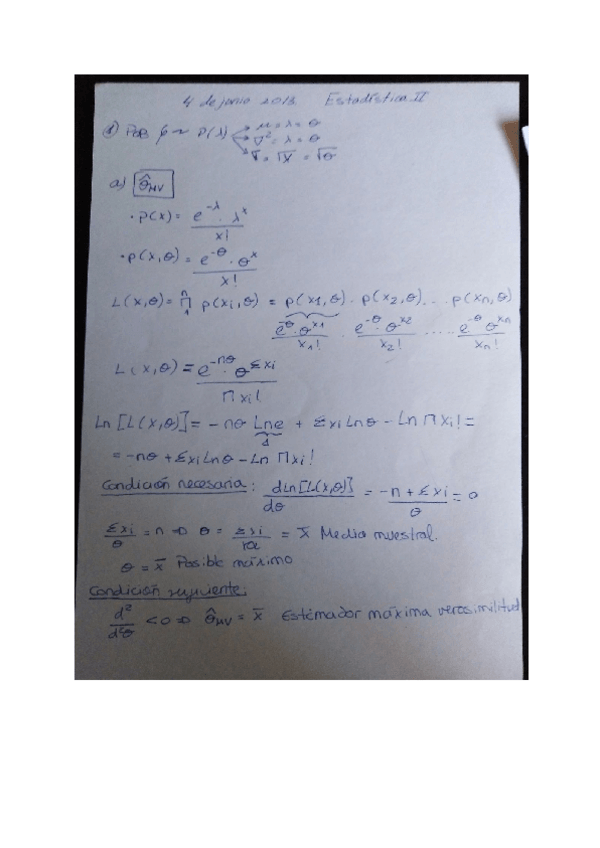 4 de junio 2018 Estadística II
① Pob ξ ~ P(λ) → μ = λ = θ
→ σ² = λ = θ
→ σ = √λ = √θ
a) θ̂MV
· P(x) = e^-λ · λ^x / x!
· P(x,θ) = e^-θ · θ^x / x!
L(x,θ) = ∏ⁿ₁ p(xi,θ) = p(x1,θ) · p(x2,θ) ... p(xn,θ)
e^-θ · θ^x1 / x1! · e^-θ · θ^x2 / x2! ..... e^-θ θ^xn / xn!
L(x,θ) = e^-nθ · θ^Σxi / ∏ xi!
Ln [L(x,θ)] = -nθ Lne + Σxi Lnθ - Ln ∏ xi! =
1
= -nθ + Σxi Lnθ - Ln ∏xi!
Condición necesaria: dLn[L(x,θ)] / dθ = -n + Σxi / θ = 0
Σxi / θ = n ⇒ θ = Σxi / n = x̄ Media muestral.
θ = x̄ Posible máximo
Condición suficiente:
d² / d²θ < 0 ⇒ θ̂MV = x̄ Estimador máxima verosimilitud